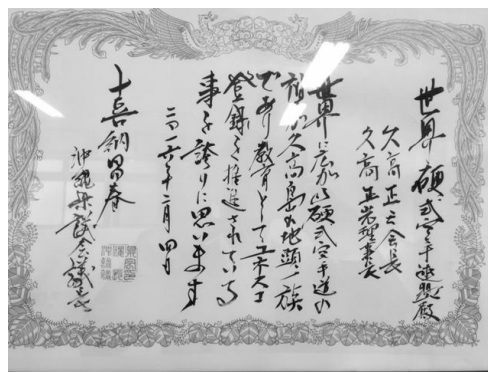 世界硬式空手連盟殿
久高正之会長
久高正光理事長
世界に広がる硬式空手道の
祖が久高島の地頭一族
であり教育としてユネスコ
登録を推進されている
事を誇りに思います
二〇一六年二月四日
喜納昌春
沖縄県議会議長